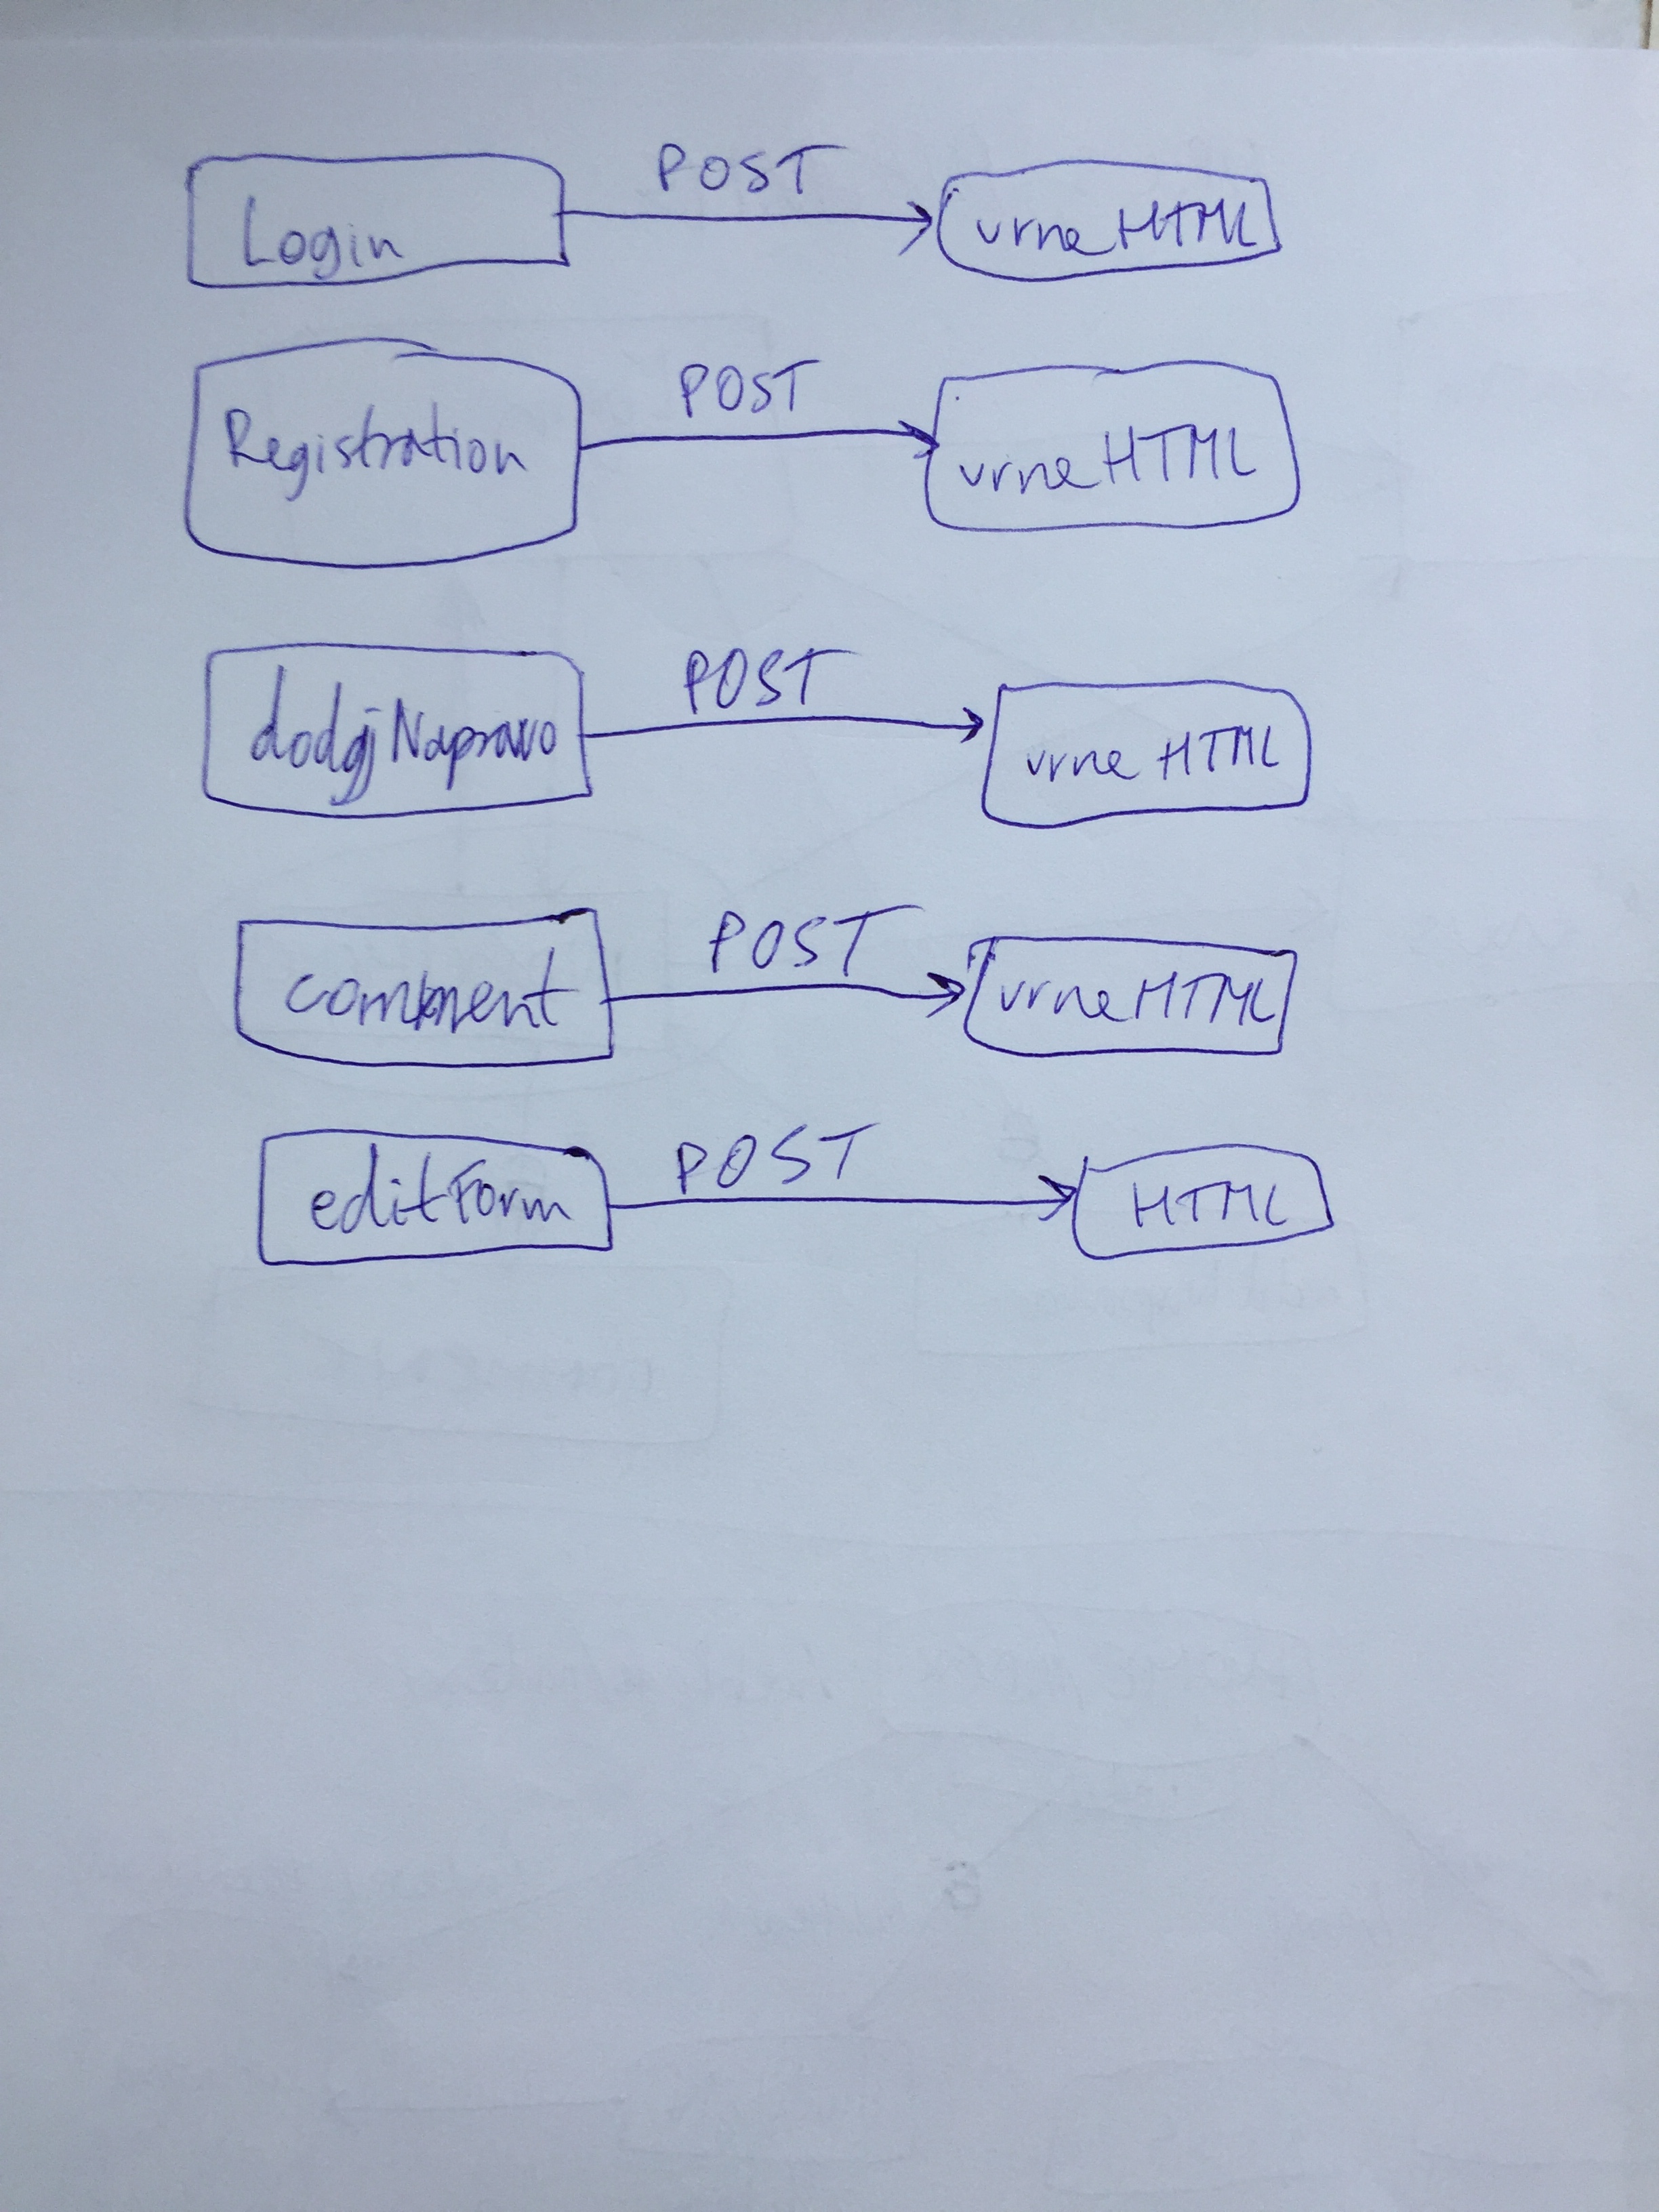 Login POST vrne HTML
Registration POST vrne HTML
dodajNapravo POST vrne HTML
comment POST vrne HTML
editForm POST HTML